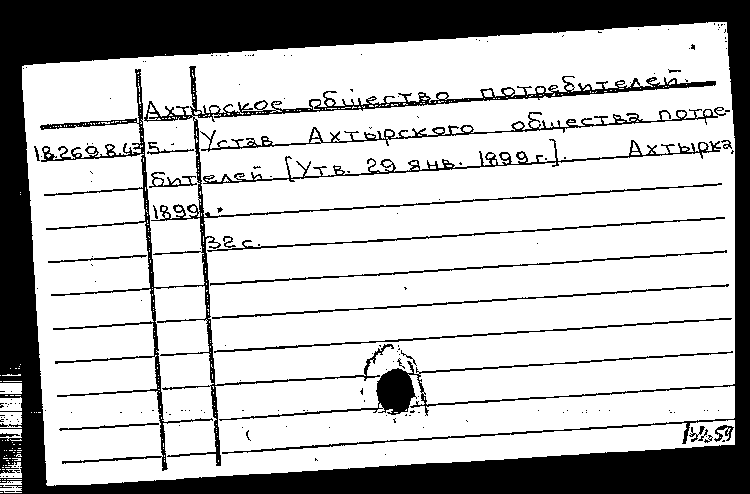 Ахтырское общество потребителей.
18.269.8.435. Устав Ахтырского общества потре-
бителей. [Утв. 29 янв. 1899 г.]. Ахтырка,
1899.
32 с.